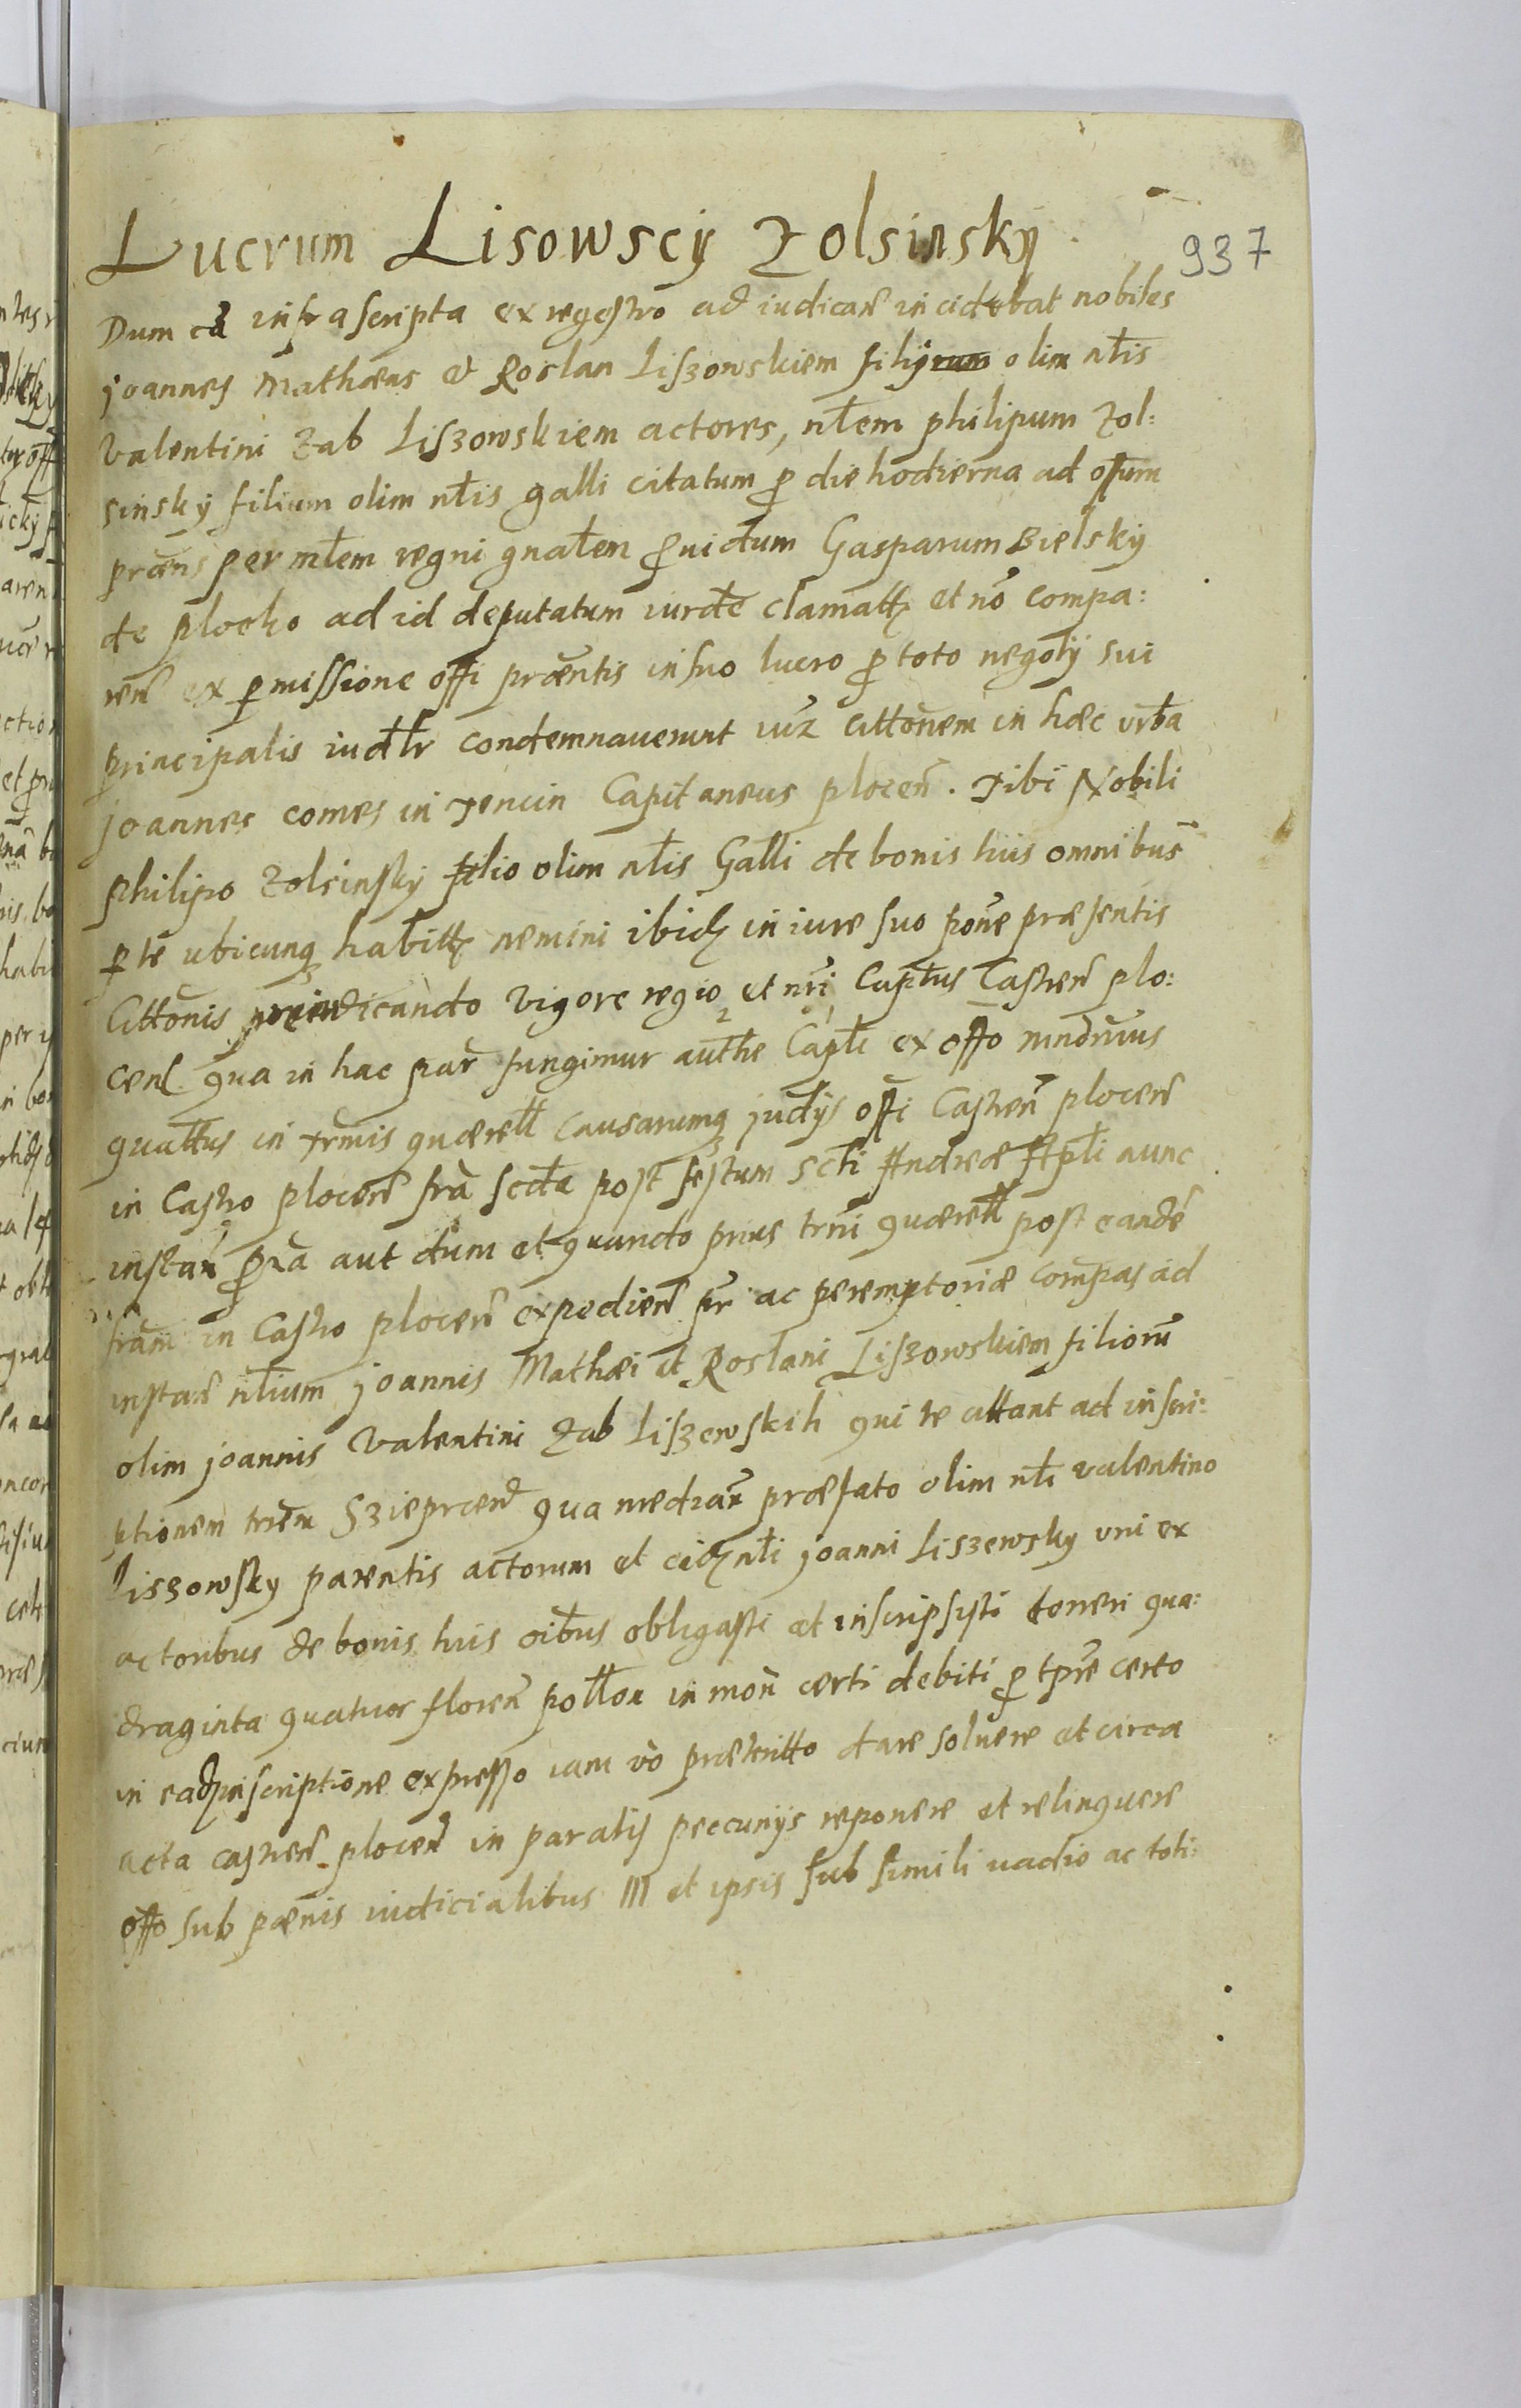 Lucrum Lisowscÿ Zolsinskÿ
937
Dum cā infrascripta ex regestro ad iudicañ incidebat nobiles
Joannes Mathæus et Roslan Liszowskiem filÿ olim nłis
Valentini Zab Liszowskiem actores, nłem philipum Zol:
sinskÿ filium olim nłis galli citatum ꝑ die hodierna ad offum
præns per młem regni gnałem ꝓuidum Gasparum Bielskÿ
de plocko ad id deputatum iurdēe clamattȝ et nō compa:
reñ ex ꝑmissione offi præntis in suo lucro ꝓ toto negotÿ sui
principalis iudłr condemnauerunt iux cittōnem in hæc vrba
Joannes comes in Tencin Capitaneus ploceñ. Tibi Nobili
Philipo Zolsinskÿ filio olim nłis Galli de bonis tuis omnibus
ꝑ te ubicunqȝ habittȝ nemini ibidȝ in iure suo pōne præsentis
Cittōnis vigore regio et nrī Capłus Castreñ plo:
ceñ qua in hac par fungimur authe Capłi ex offo mndmus
quattus in trmis quærełł causarumqȝ judÿs offi Castreñ ploceñ
in Castro ploceñ fria scda post festum Scti Andreæ Apłi nunc
instañ ꝓxa aut dum et quando prius trmi quærełł post eandē
friam in Castro ploceñ expedieñ pr ac peremptoriæ compas ad
instañ nłium Joannis Mathæi et Roslani Liszowskiem filiorū
olim Joannis Valentini Zab Liszewskih qui te cittant ad inscri:
ptionem trrem Szieprceñ qua mediañ præfato olim nłi valentino
Liszowsky parentis actorum et eidȝ nłi Joanni Liszewsky vni ex
actoribus de bonis tuis oibus obligasti et inscripsisti te teneri qua:
draginta quatuor floreñ połłon in moñ certi debiti ꝓ tpre certo
in eadȝ inscriptione expresso iam vo præteritto dare soluere et circa
acta castreñ ploceñ in paratis peccunÿs reponere et relinquere
offo sub pænis iudicialibus III et ipsis sub simili uadio ac toti: